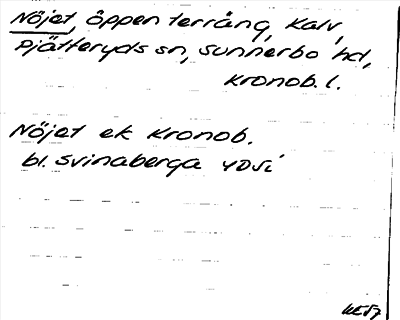 Nöjet, öppen terräng, Kalv,
Pjätteryds sn, Sunnerbo hd,
Kronob. l.
Nöjet ek Kronob.
bl. Svinaberga 4D5i